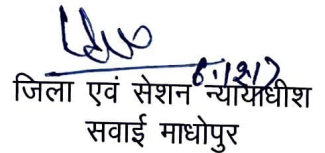 जिला एवं सेशन न्यायाधीश
सवाई माधोपुर